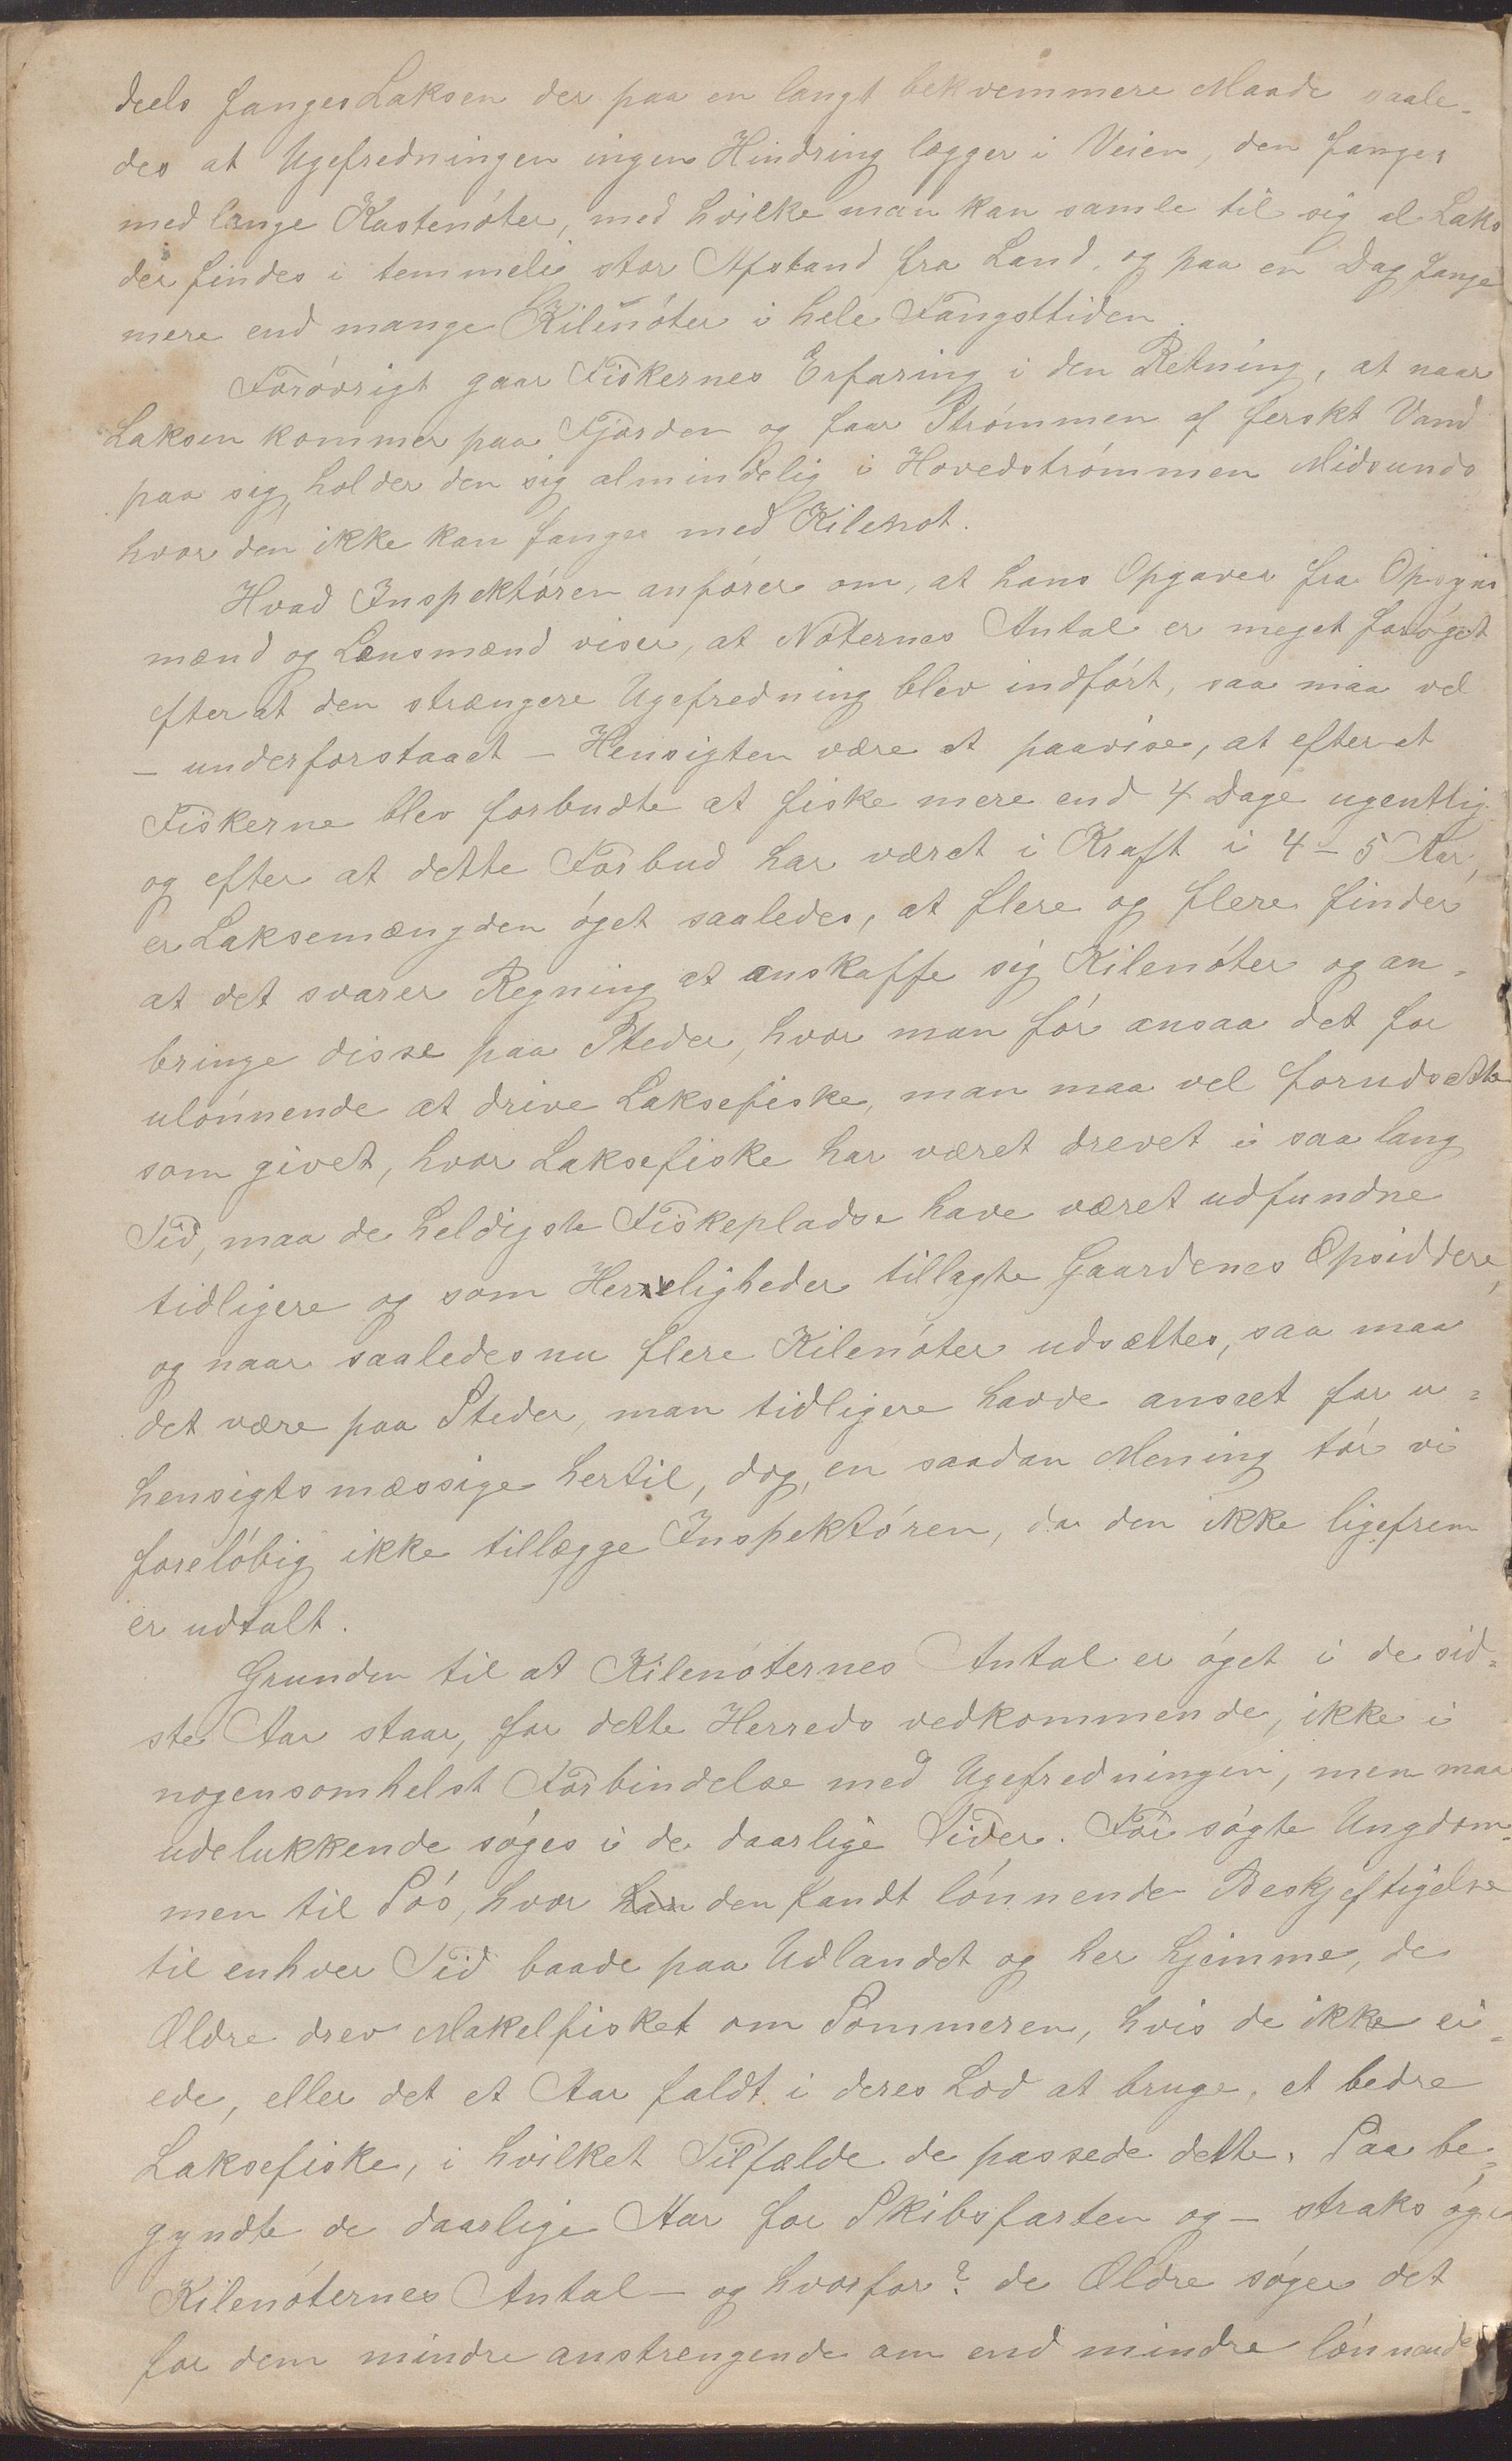 deels fanges Laksen der paa en langt bekvemmere Maade saale-
des at Ugefredningen ingen Hindring lægger i Veien, den fanges
med lange Kastenöter, med hvilke man kan samle til sig al Laks
der findes i temmelig stor Afstand fra Land, og paa en Dag fange
mere end mange Kilenöter i hele Fangsttiden.
Forövrigt gaar Fiskernes Erfaring i den Retning, at naar
Laksen kommer paa Fjorden og faar Strömmen af ferskt Vand
paa sig, holder den sig almindelig i Hovedströmmen Midsunds
hvor den ikke kan fanges med Kilenot.
Hvad Inspektören anförer om, at hans Opgaver fra Opsyns
mænd og Lensmænd viser, at Nöternes Antal er meget foröget
efter at den strængere Ugefredning blev indfört, saa maa vel
- underforstaaet - Hensigten være at paavise, at efter at
Fiskerne blev forbudte at fiske mere end 4 Dage ugentlig
og efter at dette Forbud har været i Kraft i 4-5 Aar,
er Laksemængden öget saaledes, at flere og flere finder
at det svarer Regning at anskaffe sig Kilenöter og an-
bringe disse paa Steder, hvor man för ansaa det for
ulönnende at drive Laksefiske, man maa vel forudsætte
som givet, hvor Laksefiske har været drevet i saa lang
Tid, maa de heldigste Fiskepladse have været udfundne
tidligere og som Herreligheder tillagte Gaardenes Opsiddere,
og naar saaledes nu flere Kilenöter udsættes, saa maa
det være paa Steder, man tidligere havde anseet for u-
hensigtsmæssige hertil, dog, en saadan Mening tör vi
forelöbig ikke tillægge Inspektören, da den ikke ligefrem
er udtalt.
Grunden til at Kilenöternes Antal er öget i de sid-
ste Aar staar, for dette Herreds vedkommende, ikke i
nogensomhelst Forbindelse med Ugefredningen, men maa
udelukkende söges i de daarlige Tider. För sögte Ungdom-
men til Sös, hvor den fandt lönnende Beskjeftigelse
til enhver Tid baade paa Udlandet og her hjemme, de
Ældre drev Makelfisket om Sommeren, hvis de ikke ei-
ede, eller det et Aar faldt i deres Lod at bruge, et bedre
Laksefiske, i hvilket Tilfælde de passede dette. Saa be-
gyndte de daarlige Aar for Skibsfarten og - straks öges
Kilenöternes Antal - og hvorfor? de Ældre söger det
for dem mindre anstrengende om end mindre lönnende